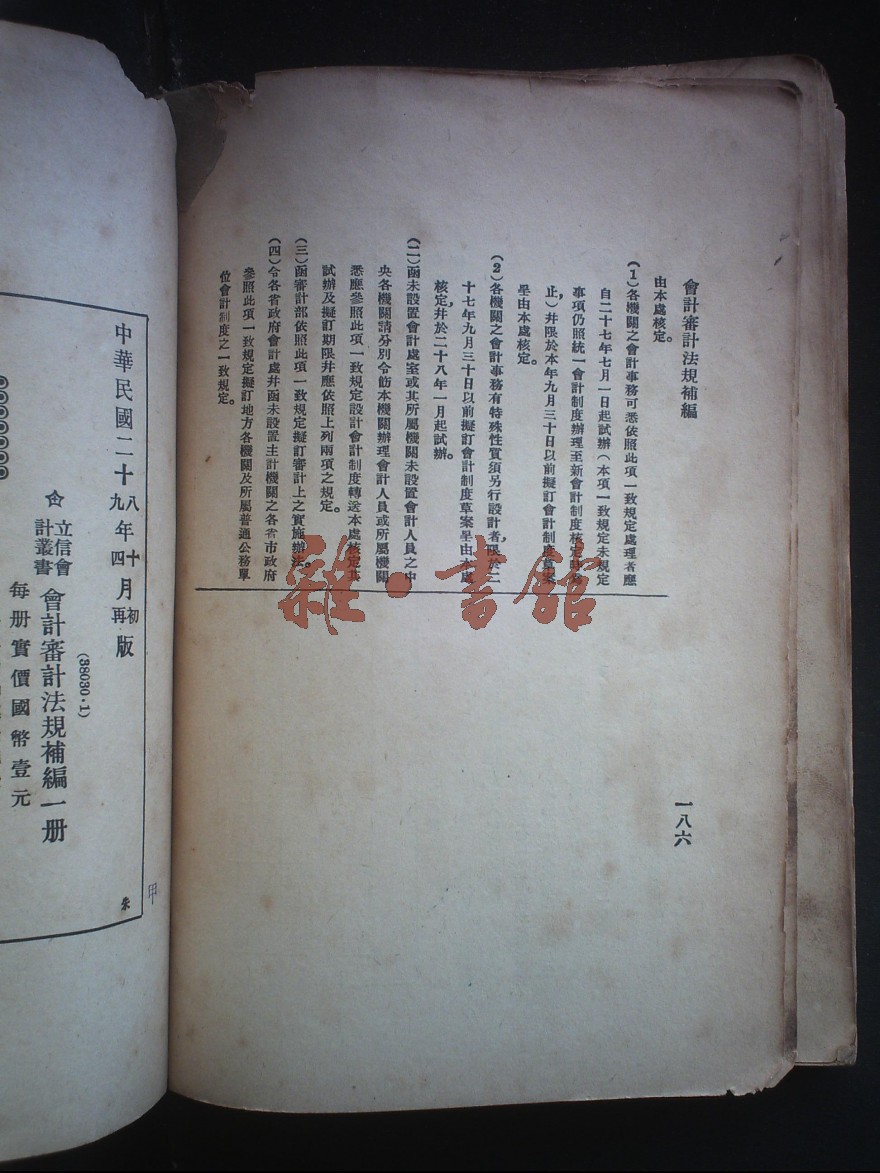 會計審計法規補編
一八六
由本處核定。
(1)各機關之會計事務可悉依照此項一致規定處理者應
自二十七年七月一日起試辦(本項一致規定未規定
事項仍照統一會計制度辦理至新會計制度核定
止),并限於本年九月三十日以前擬訂會計制度草案
呈由本處核定。
(2)各機關之會計事務有特殊性質須另行設計者,限於二
十七年九月三十日以前擬訂會計制度草案呈由本處
核定,并於二十八年一月起試辦。
(二)函未設置會計處室或其所屬機關未設置會計人員之中
央各機關請分別令飭本機關辦理會計人員或所屬機關
悉應參照此項一致規定設計會計制度轉送本處核定其
試辦及擬訂期限并應依照上列兩項之規定。
(三)函審計部依照此項一致規定擬訂審計上之實施辦法。
(四)令各省政府會計處并函未設置主計機關之各省市政府
參照此項一致規定擬訂地方各機關及所屬普通公務單
位會計制度之一致規定。
中華民國二十八年十月初版
九 四 再
(38030·1)
立信會計叢書 會計審計法規補編一册
每册實價國幣壹元
朱
甲
雜·書館